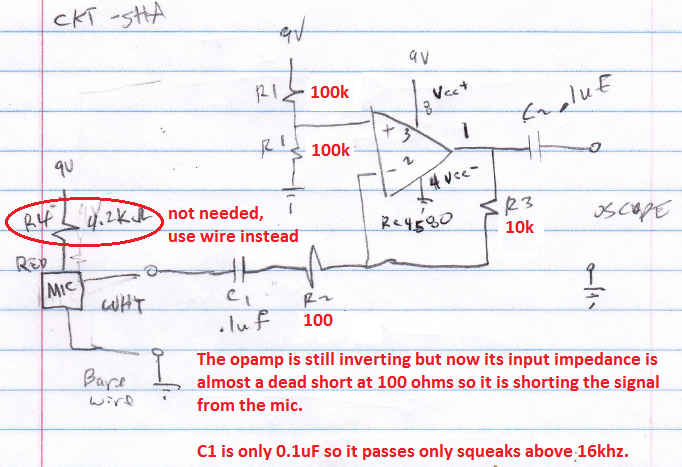 CKT -5HA
9V
9V
R1 100k
Vcc+
8
C2 .1uF
+ 3
1
R1 100k
- 2
4 Vcc-
9V
R4 4.2K Ω
not needed,
use wire instead
Rc4580
R3
10k
OSCOPE
RED
MIC
WHT
C1
.1uf
R2
100
Bare
wire
The opamp is still inverting but now its input impedance is
almost a dead short at 100 ohms so it is shorting the signal
from the mic.
C1 is only 0.1uF so it passes only squeaks above 16khz.